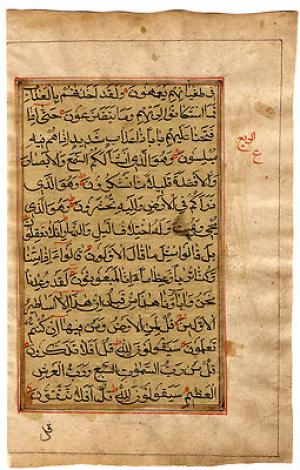 في طغيانهم يعمهون ولقد اخذنهم بالعذاب
فما استكانوا لربهم وما يتضرعون حتى اذا
فتحنا عليهم بابا ذا عذاب شديد اذا هم فيه
مبلسون وهو الذي انشا لكم السمع والابصار
والافئدة قليلا ما تشكرون وهو الذي
ذراكم في الارض واليه تحشرون وهو الذي
يحيي ويميت وله اختلاف الليل والنهار افلا تعقلون
بل قالوا مثل ما قال الاولون قالوا ءاذا متنا
وكنا ترابا وعظاما ءانا لمبعوثون لقد وعدنا
نحن واباؤنا هذا من قبل ان هذا الا اساطير
الاولين قل لمن الارض ومن فيها ان كنتم
تعلمون سيقولون لله قل افلا تذكرون
قل من رب السموات السبع ورب العرش
العظيم سيقولون لله قل افلا تتقون
الربع
ع
قل